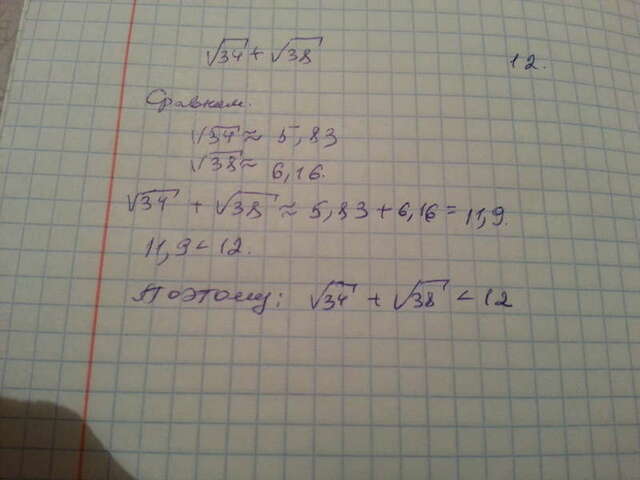 √34 + √38 12.
Сравним.
√34 ≈ 5,83
√38 ≈ 6,16.
√34 + √38 ≈ 5,83 + 6,16 = 11,9.
11,9 < 12.
Поэтому: √34 + √38 < 12